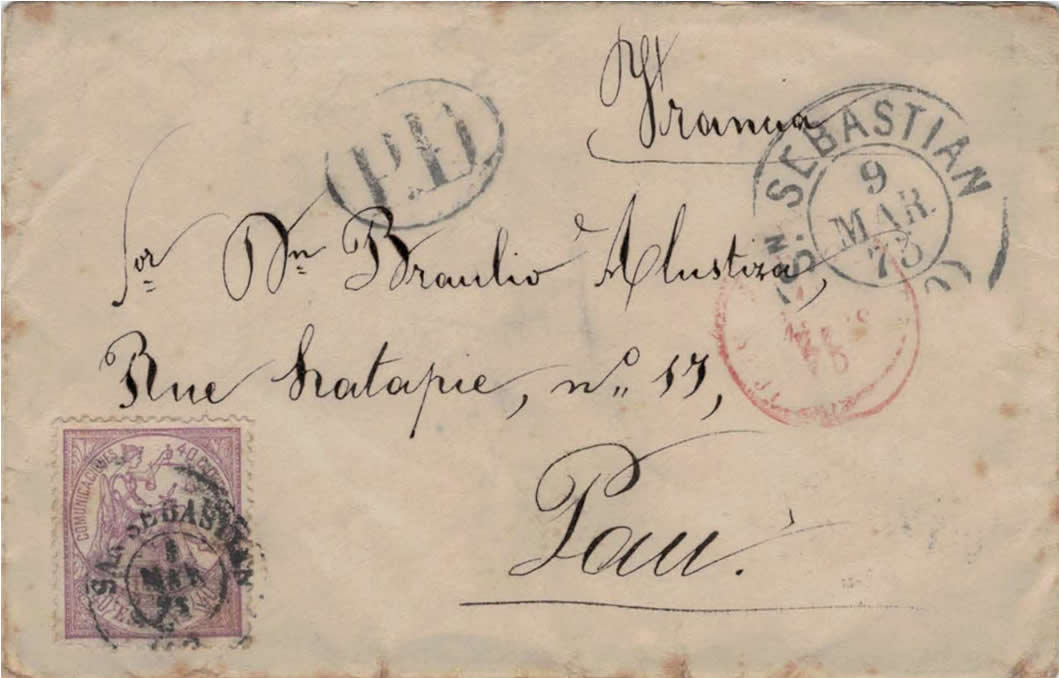 Francia
P.D.
Sn. SEBASTIAN
9
MAR
75
Sor Dn Braulio Alustiza,
Rue Latapie, nº 17,
Pau.
COMUNICACIONES 40 C
SAN SEBASTIAN
MAR
75